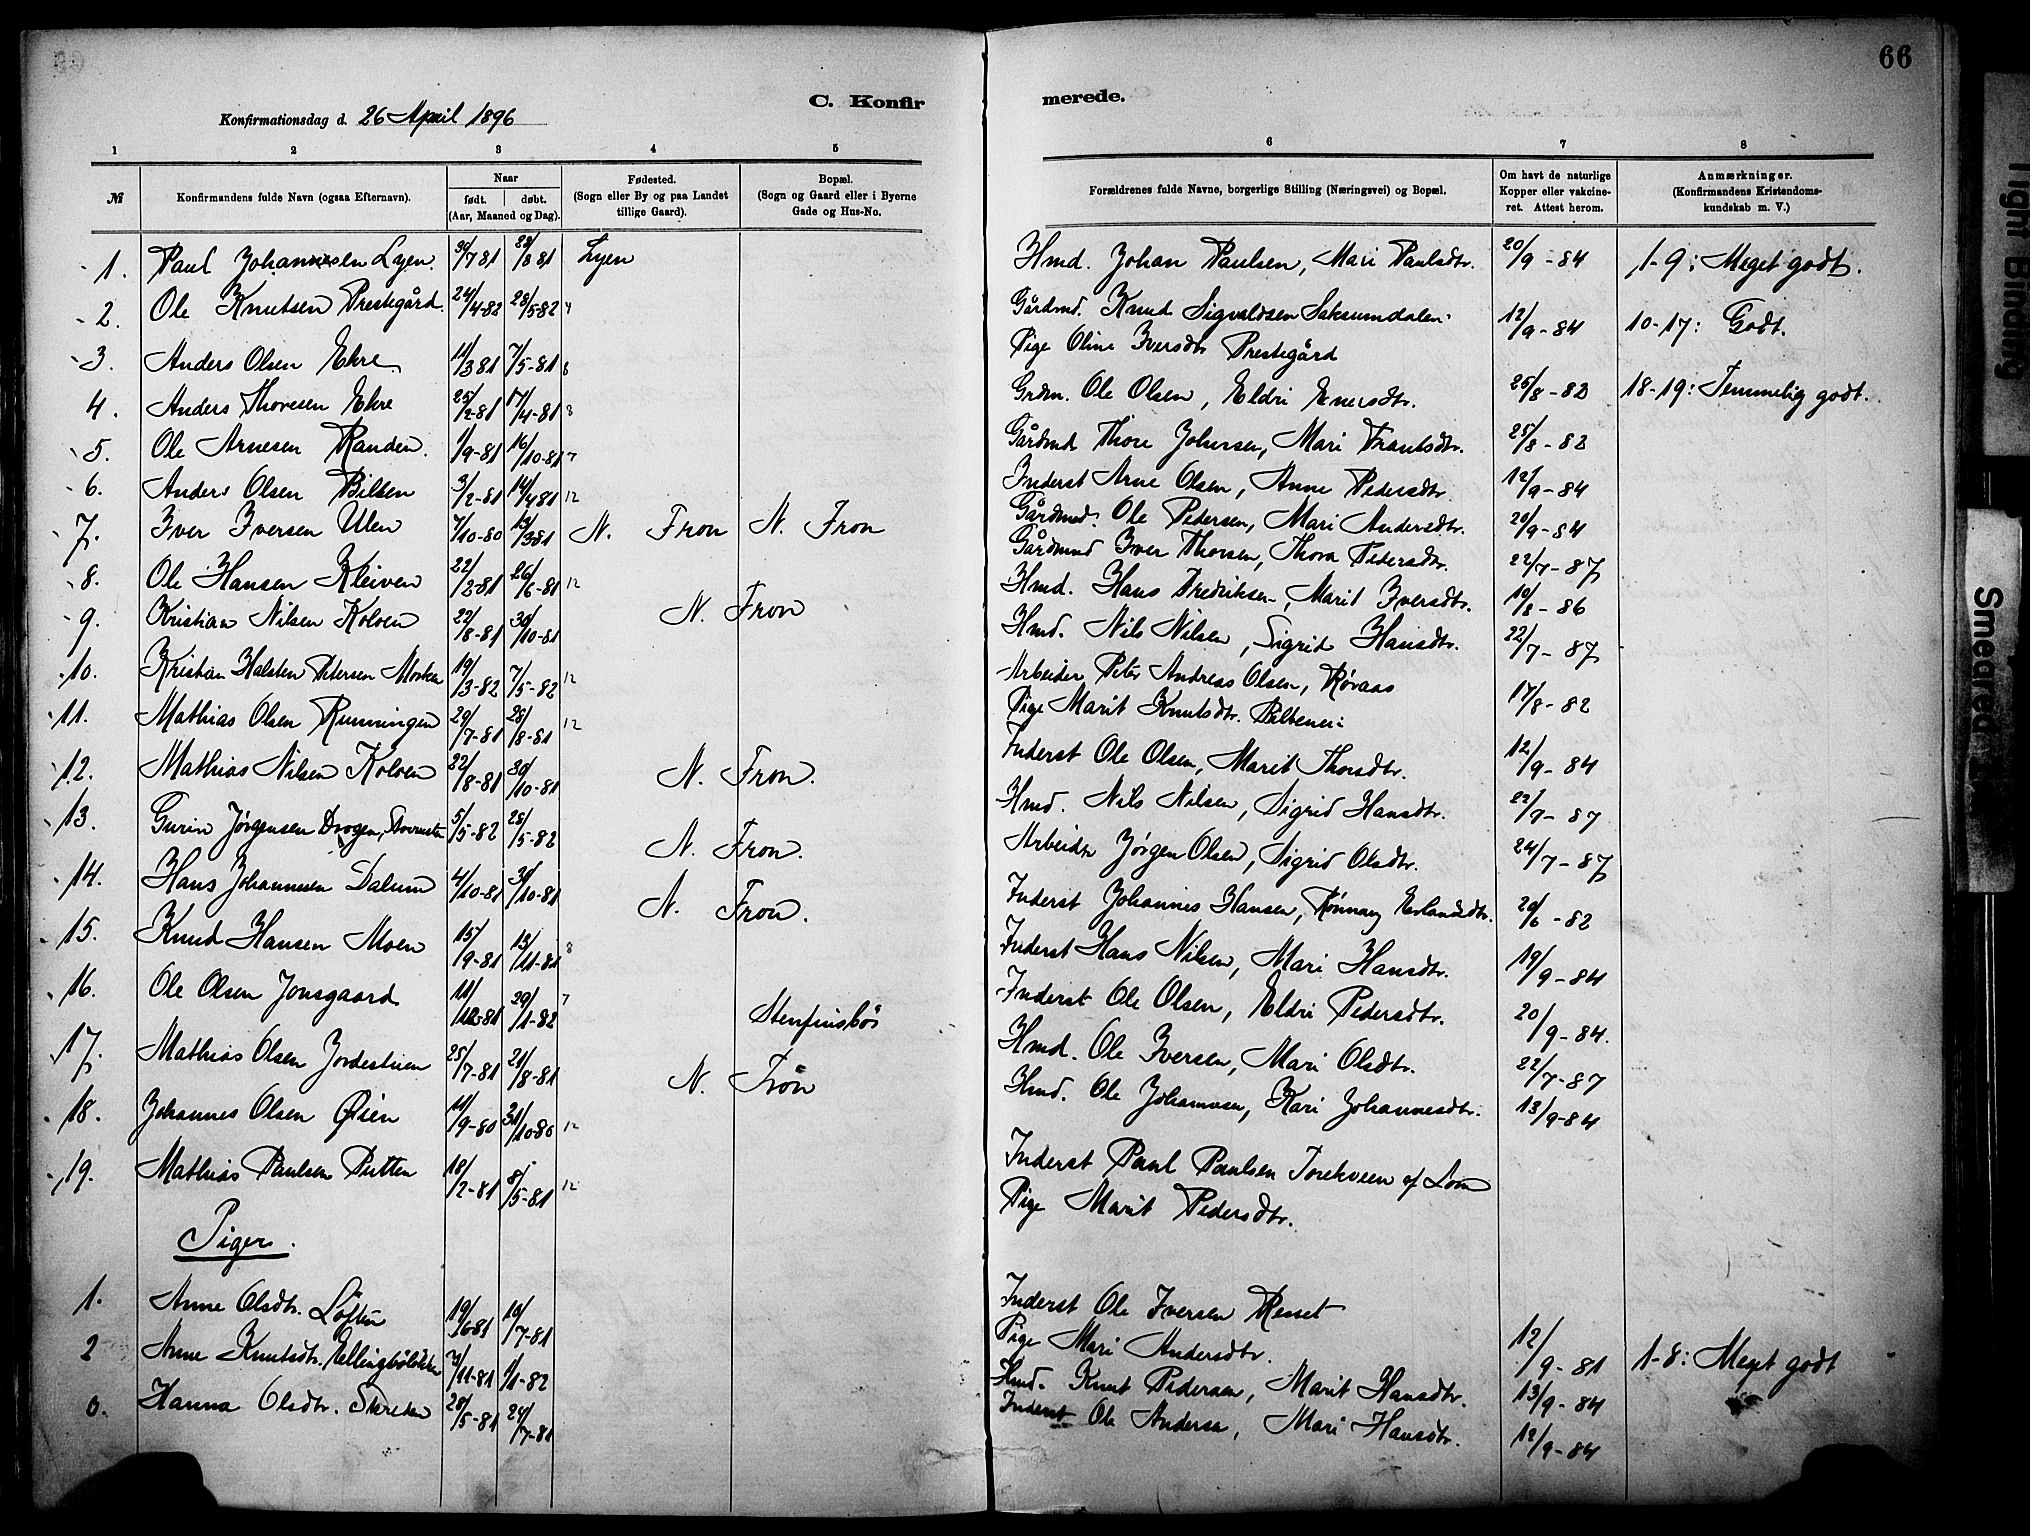 66
C. Konfir
merede.
Konfirmationsdag d. 26 April 1896
1 2 3 4 5
6 7 8
№
Konfirmandens fulde Navn (ogsaa Efternavn).
Naar
født. døbt.
(Aar, Maaned og Dag).
Fødested.
(Sogn eller By og paa Landet
tillige Gaard).
Bopæl.
(Sogn og Gaard eller i Byerne
Gade og Hus-No.
Forældrenes fulde Navne, borgerlige Stilling (Næringsvei) og Bopæl.
Om havt de naturlige
Kopper eller vakcine-
ret. Attest herom.
Anmærkninger.
(Konfirmandens Kristendoms-
kundskab m. V.)
1. Paul Johannesen Lyen. 30/7 81 28/8 81 Lyen
2. Ole Knutsen Prestegård. 24/4-82 28/5-82
3. Anders Olsen Ekre 11/3 81 7/5-81
4. Anders Thoresen Ekre 25/2-81 17/4-81
5. Ole Arnesen Randen. 1/9-81 16/10-81
6. Anders Olsen Bilben 3/2-81 14/4 81 12
7. Iver Iversen Ulen 7/10-80 13/3 81 N. Fron N. Fron
8. Ole Hansen Kleiven 22/2-81 26/6-81 12
9. Kristian Nilsen Kolven 22/8-81 30/10-81 N. Fron
10. Kristian Halsten Petersen 19/3-82 7/5-82 12
11. Mathias Olsen Rumningen 29/7-81 28/8-81 12
12. Mathias Nilsen Kolven 22/8-81 30/10-81 N. Fron.
13. Gurin Jørgensen 5/5-82 28/5-82 N. Fron.
14. Hans Johannesen Dalum 4/10-81 30/10-81 N. Fron.
15. Knud Hansen Moen 15/9-81 13/11-81 8
16. Ole Olsen Jonsgaard 29/1-82 7 Stenfinsbø
17. Mathias Olsen Jordestuen 25/7-81 21/8-81 N. Fron
18. Johannes Olsen Øien 11/9-80 31/10-80 12
19. Mathias Paulsen Putten 18/2-81 8/5-81 12
Piger.
1. Anne Olsdtr. Løften 19/6 81 10/7-81
2 Anne Knutsdtr. 1/1-82
Hanna Olsdtr. 28/5-81 24/7-81
Hmd. Johan Paulsen, Mari Paulsdtr. 20/9-84 1-9: Meget godt.
Gårdmd. Knud Sigvaldsen Saksumdalen 12/9-84 10-17: Godt.
Pige Oline Iversdtr Prestegård
Grdm. Ole Olsen, Eldri Enersdtr. 25/8-83 18-19: Temmelig godt.
Gårdmd Thore Johnsen, Mari Frantsdtr. 25/8-82
Inderst Arne Olsen, Anne Pedersdtr. 12/9-84
Gårdmd. Ole Pedersen, Mari Andersdtr. 20/9-84
Gårdmd Iver Thorsen, Thora Pedersdtr. 22/7-87
Hmd. Hans Fredriksen, Marit Iversdtr. 19/8-86
Hmd. Nils Nilsen, Sigrid Hansdtr. 22/7-87
Arbeider Peter Andreas Olsen, Røraas
Pige Marit Knutsdtr. 17/8-82
Inderst Ole Olsen, Marit Thorsdtr. 12/9-84
Hmd. Nils Nilsen, Sigrid Hansdtr. 22/7-87
Arbeider Jørgen Olsen, Sigrid Olsdtr. 24/7-87
Inderst Johannes Hansen, Rønnaug Erlandsdtr. 20/6-82
Inderst Hans Nilsen, Mari Hansdtr. 19/9-84
Inderst Ole Olsen, Eldri Pedersdtr. 20/9-84.
Hmd. Ole Iversen, Mari Olsdtr. 22/7-87
Hmd. Ole Johannesen, Kari Johannesdtr. 13/9-84
Inderst Paul Paulsen af Lom
Pige Marit Pedersdtr.
Inderst Ole Iversen
Pige Mari Andersdtr. 12/9-81 1-8: Meget godt
Hmd. Knut Pedersen, Marit Hansdtr. 13/9-84
Inderst Ole Andersen, Mari Hansdtr. 12/9-84
Tight Binding
Smeared